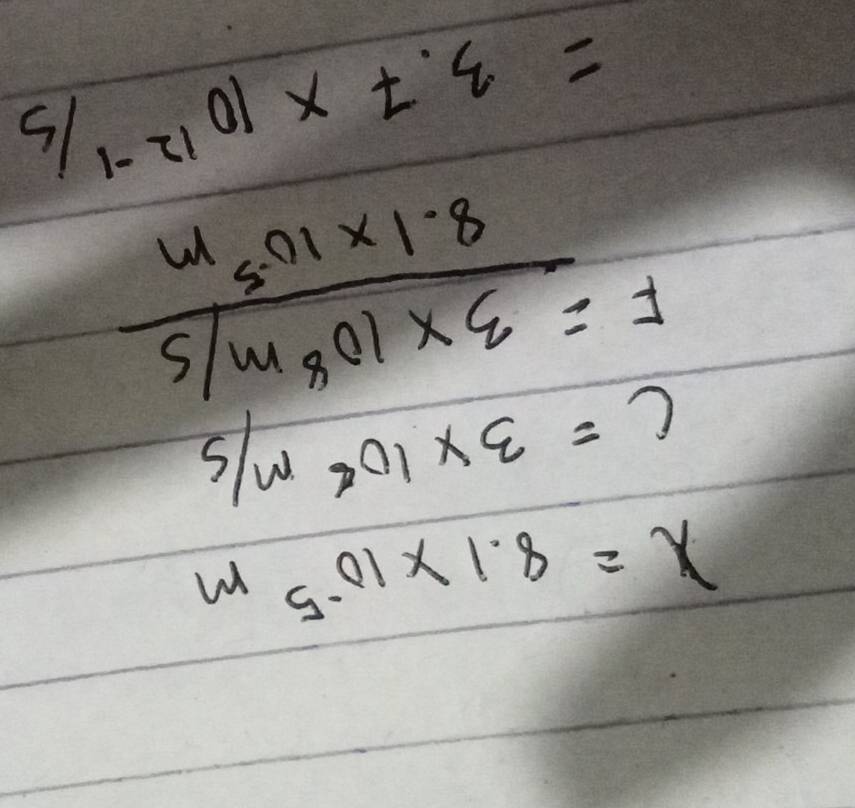 λ = 8.1 × 10⁻⁵ m
C = 3 × 10⁸ m/s
F = 3 × 10⁸ m/s
8.1 × 10⁻⁵ m
= 3.7 × 10¹²⁻¹ /s